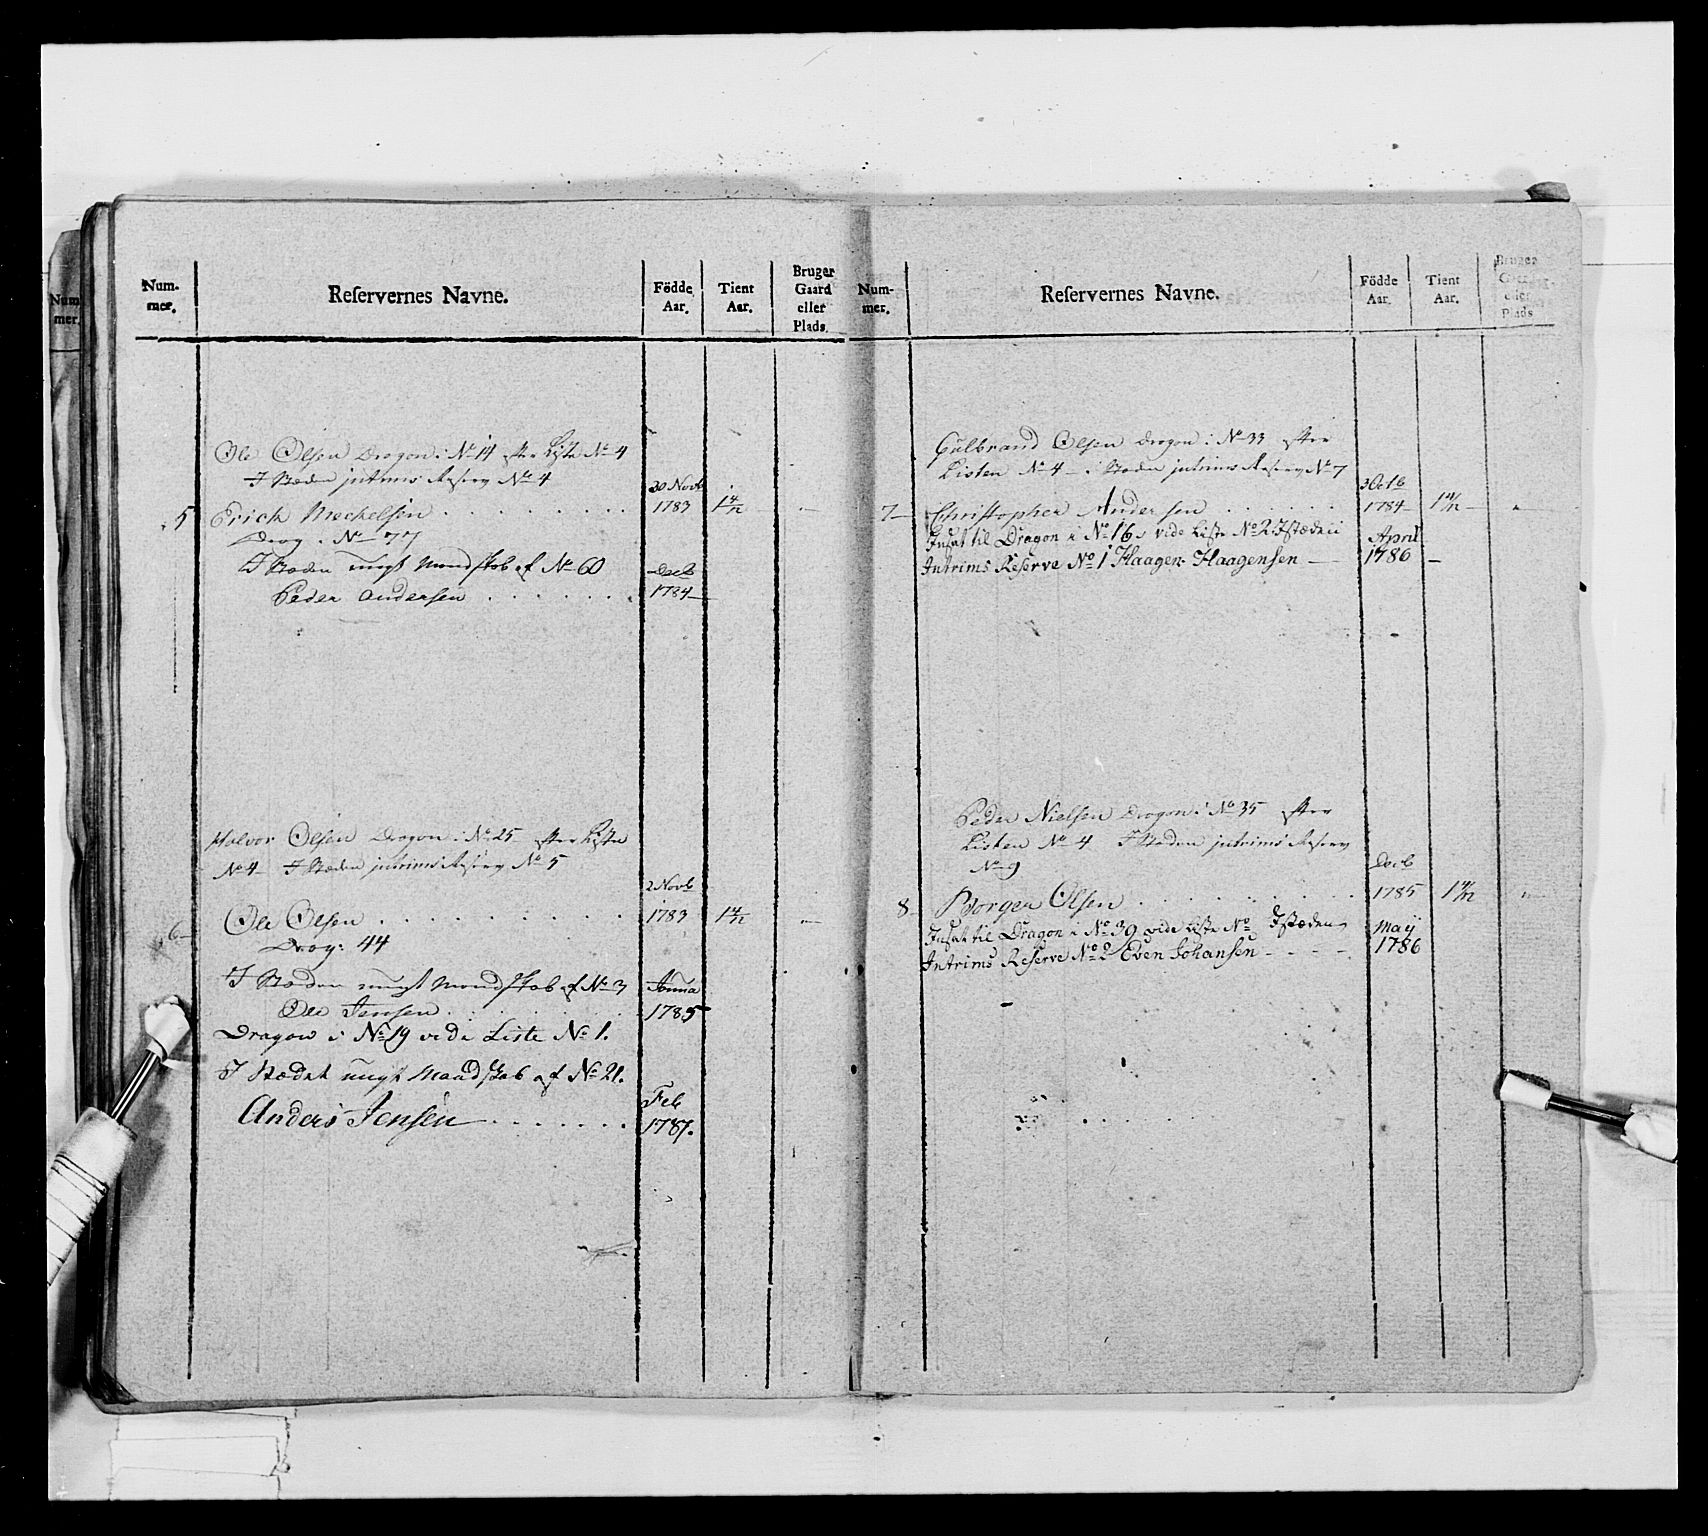 Num-
mer.
Reservernes Navne.
Födde
Aar.
Tient
Aar.
Bruger
Gaard
eller
Plads.
Ole Olsen Dragon i No 14 efter Liste No 4
I Stæden intrims Reserv No 4
30 Novb
5 Erich Mechelsen . . . . . . . . 1783 1 4/12 —
Drag: No 77
I Stæden ungt Mandskab af No 60 Decb
Peder Andersen . . . . . . . 1784
Halvor Olsen Dragon i No 25 efter Liste
No 4 I Stæden intrims Reserv No 5
2 Novb
6 Ole Olsen . . . . . . . . . 1783 1 4/12 —
Drag: 44
I Stæden ungt Mandskab af No 3 Janua
Ole Jensen . . . . . . 1785
Dragon i No 19 vide Liste No 1.
I Stædet ungt Mandskab af No 21.
Feb
Anders Jensen . . . . . . . 1787.
Num-
mer.
Reservernes Navne.
Födde
Aar.
Tient
Aar.
Bruger
Gaard
eller
Plads
Gulbrand Olsen Dragon i No 33 efter
Listen No 4 i Stæden intrims Reserv No 7
3 Octb
7 Christopher Andersen . . . . . . 1784 1 4/12
Insat til Dragon i No 16 vide Liste No 2 Istæden April
Intrims Reserve No 1 Haagen Haagensen — 1786 —
Peder Nielsen Dragon i No 35 efter
Listen No 4 I Stæden intrims Reserv
No 9 Decb
8 Borger Olsen . . . . . . . . . 1785 1 4/12
Insat til Dragon i No 39 vide Liste No Istæden May
Intrims Reserve No 2 Even Johansen - - - - 1786